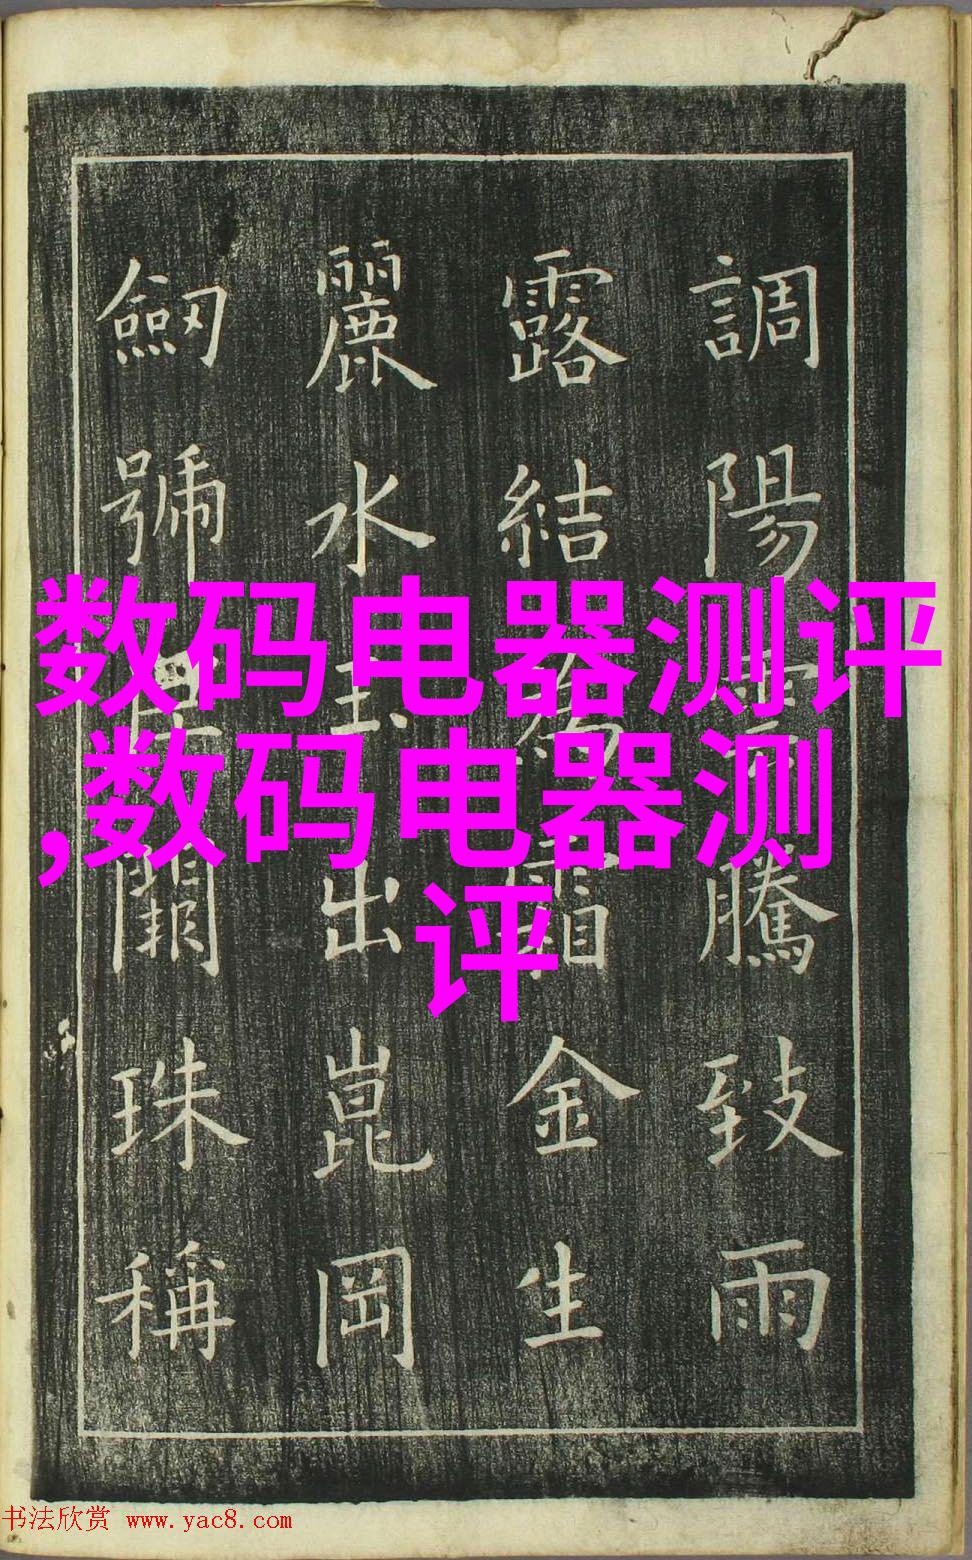 調陽雲騰致雨
露結為霜金生
麗水玉出崑岡
劒號巨闕珠稱
数码电器测评
,数码电器测
评
书法欣赏 www.yac8.com